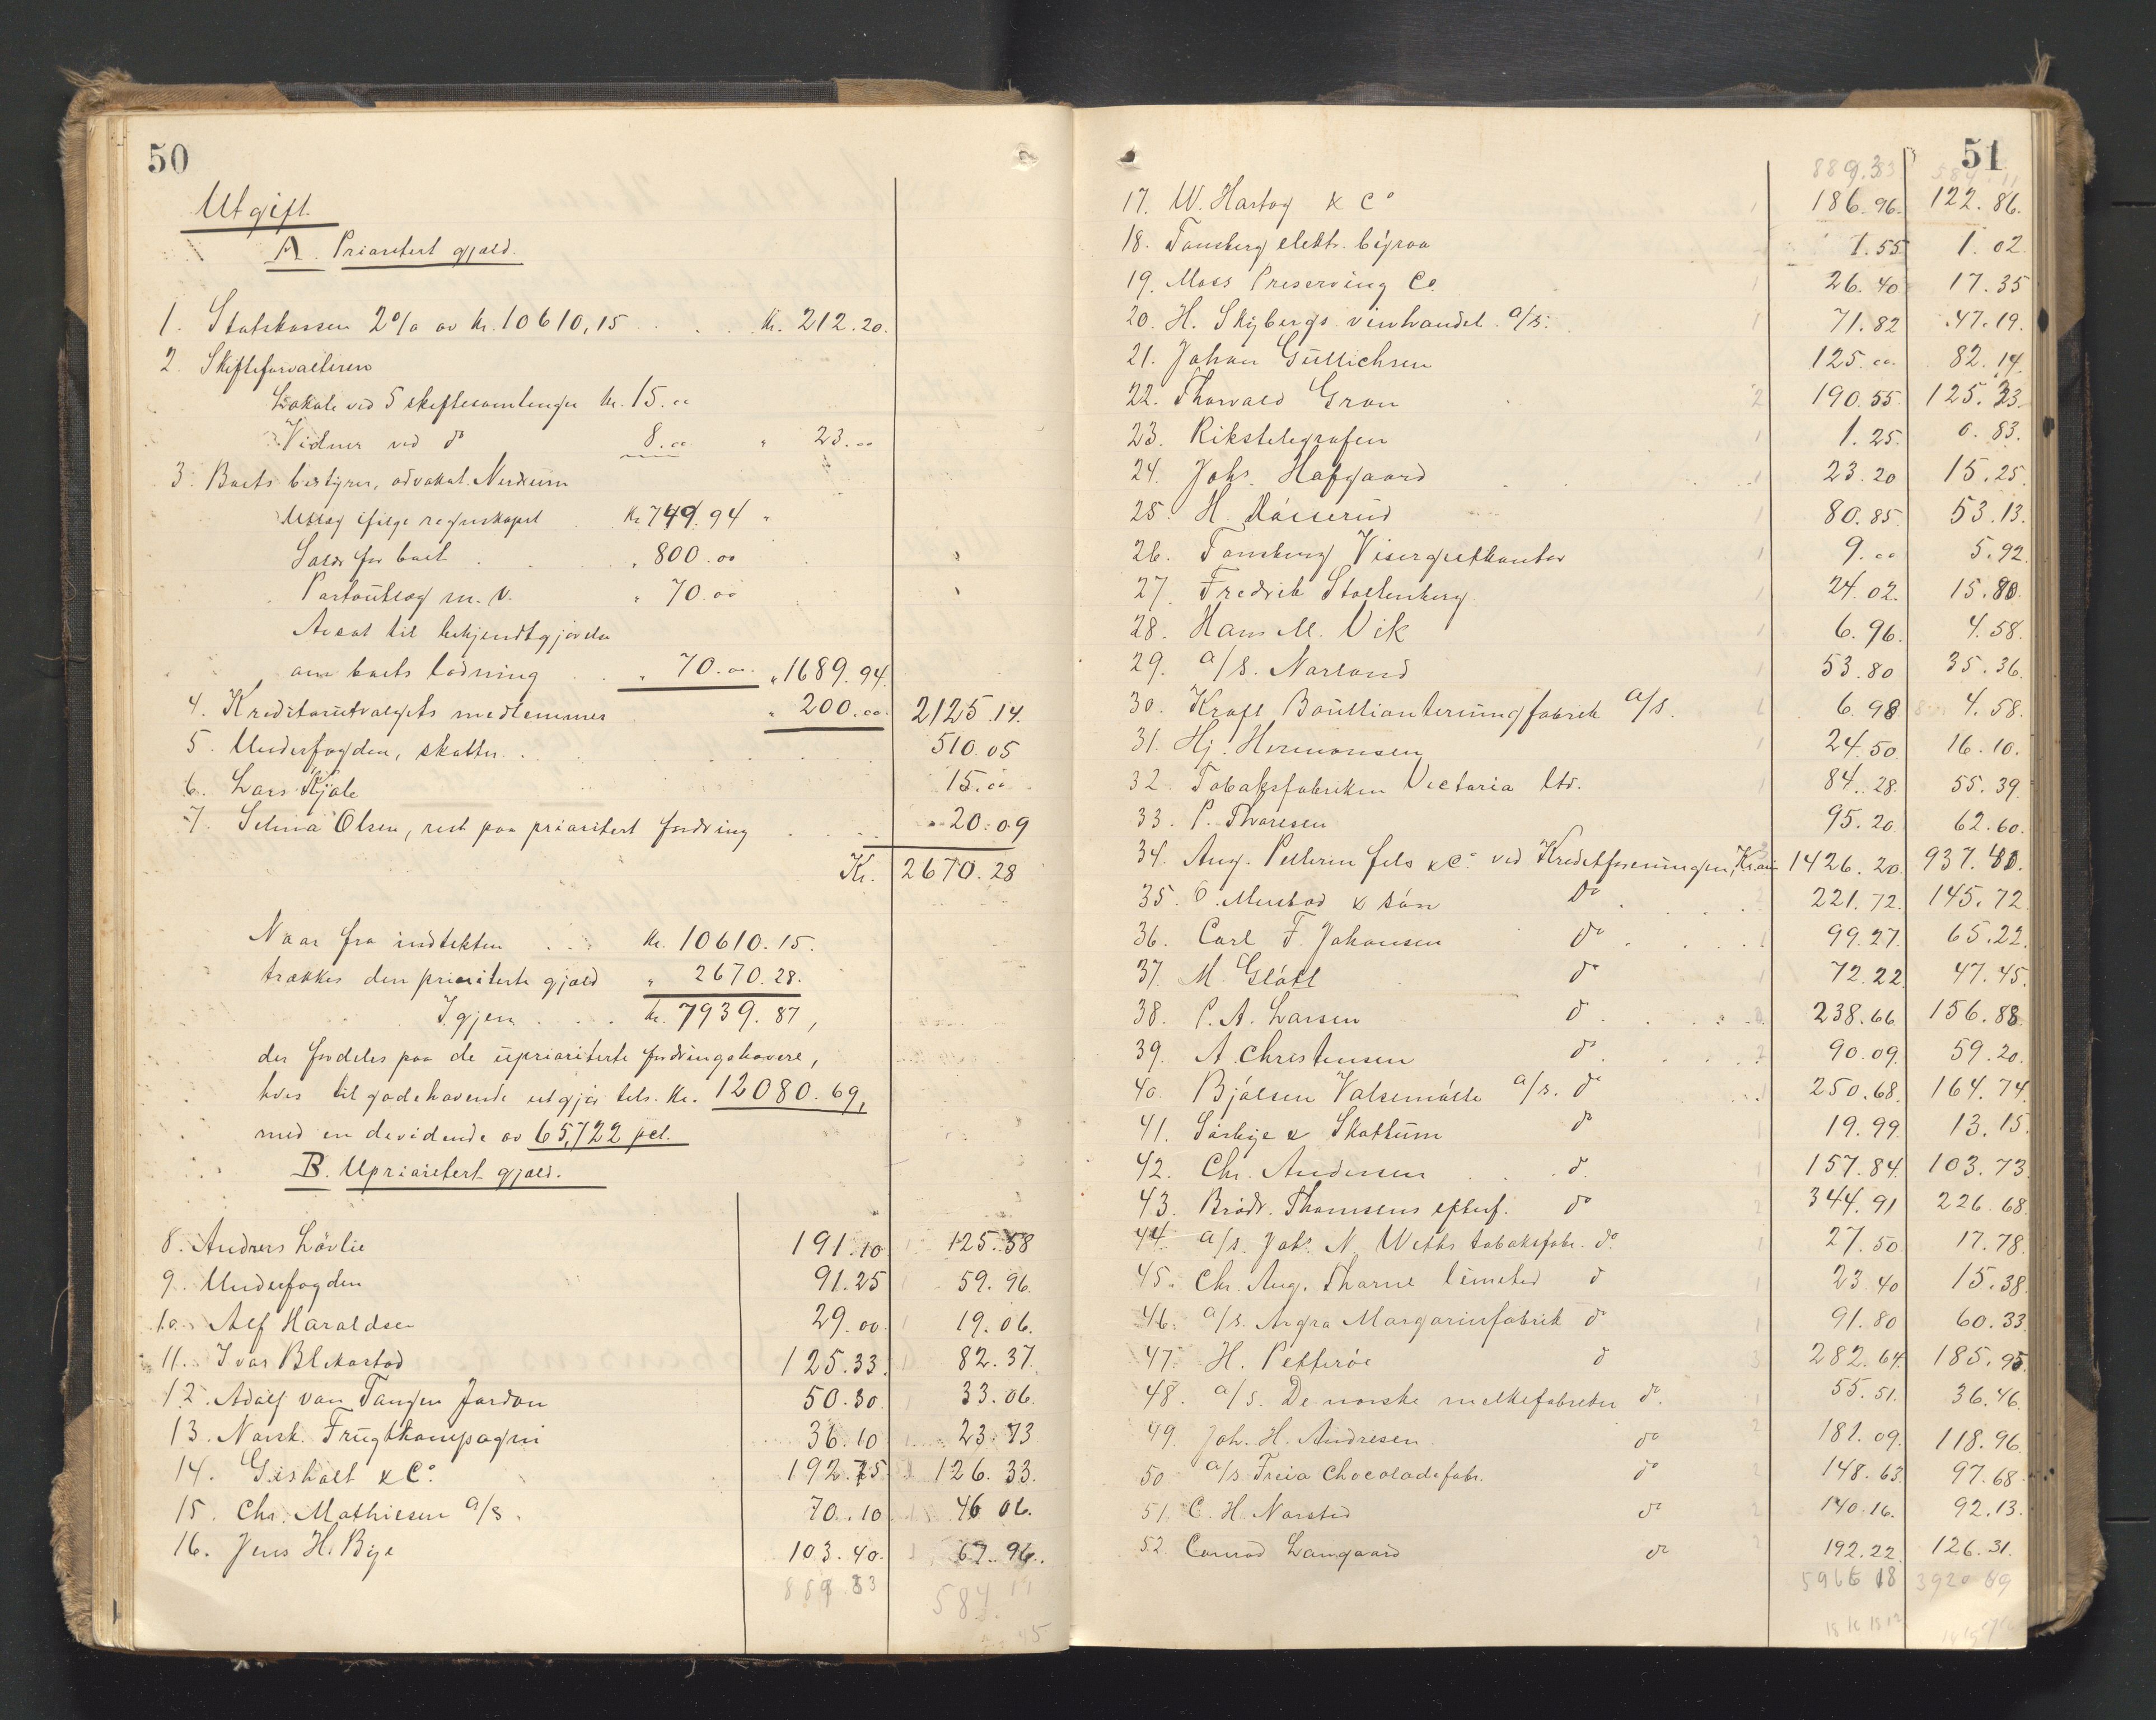 50
Utgift.
A. Prioritert gjæld.
1. Statskassen 2% av kr. 10610,15 . . . kr. 212.20.
2. Skifteforvalteren
Lokale ved 5 skiftesamlinger kr. 15.00
Vidner ved do 8.00 " 23.00
3. Boets bestyrer, advokat
Utlæg ifølge regnskapet kr 749.94 "
Salær for boet . . . " 800.00
Portoutlæg m.v. " 70.00
Avsat til bekjendtgjørelse
om boets lodning " 70.00 " 1689.94
4. Kreditorutvalgets medlemmer " 200.00 2125.14.
5. Underfogden, skatter . . . 510.05
6. Lars Kjøle 15.00
7. Selma Olsen, rest paa prioritert fordring . . . 20.09
Kr. 2670.28
Naar fra indtekten . . . kr. 10610.15.
trækkes den prioriterte gjæld " 2670.28.
Igjen . . . kr. 7939.87,
der fordeles paa de uprioriterte fordringshavere,
hvis tilgodehavende utgjør tils. kr. 12080.69,
med en dividende av 65,722 pct.
B. Uprioritert gjæld.
8. Anders Løvlie 191.10 125.58
9. Underfogden 91.25 59.96.
10. Alf Haraldsen 29.00. 19.06.
11. Ivar Blikastad 125.33. 82.37.
12. Adolf van Tangen Jordan 50.30 33.06.
13. Norsk Frugtkompagni 36.10 23.73
14. Gisholt & Co. 192.75 126.33.
15. Chr. Mathiesen a/s. 70.10 46 06.
16. Jens H. Bye 103.40. 67.96.
889.33 584.11
51
889.33 584.11
17. W. Hartog & Co 186.96. 122.86.
18. Tønsberg elektr. byraa 1.55 1.02
19. Moss Preserving Co. 26.40 17.35
20. H. Skybergs vinhandel a/s. 71.82 47.19.
21. Johan Gullichsen 125.00 82.14
22. Thorvald Gran 190.55 125.23.
23. Rikstelegrafen 1.25. 0.83.
24. Johs. Hafgaard 23.20 15.25
25. H. 80.85 53.13.
26. Tønsberg Visergutkontor 9.00 5.92
27. Fredrik Stoltenberg 24.02. 15.80.
28. Hans M. Vik 6.96. 4.58.
29. a/s. Norland 53.80 35.36.
30. Kraft Bouillonterningfabrik a/s. 6.98 4.58.
31. Hj. Hermansen 24.50 16.10.
32. Tobaksfabriken Victoria ltd. 84.28. 55.39.
33. P. Thoresen 95.20 62.60.
34. Aug. Pellerin fils & Co. ved Kreditforeningen, Kr.ania 1426.20. 937.40.
35. O. Mustad & søn Do 221.72. 145.72
36. Carl F. Johansen do 99.27. 65.22.
37. M. Gløtt do 72.22 47.45.
38. P. A. Larsen do 238.66 156.88.
39. A. Christensen do 90.09. 59.20.
40. Bjølsen Valsemølle a/s. do 250.68. 164.74.
41. Sørbye & Skattum do 19.99. 13.15.
42. Chr. Andersen do 157.84. 103.73.
43. Brødr. Thomsens efterf. do 344.91 226.68.
44. a/s. Johs. N. Weths tobaksfabr. do 27.50 17.78.
45. Chr. Aug. Thorne limited do 23.40 15.38.
46. a/s. Agra Margarinfabrik do 91.80 60.33.
47. H. Petterøe do 282.64. 185.95.
48. a/s. De norske melkefabriker do. 55.51. 36.46.
49. Joh. H. Andresen do 181.09. 118.96.
50. a/s. Freia Chocoladefabr. do 148.63. 97.68.
51. C. H. Norsted do 140.16. 92.13.
52. Conrad Langaard do 192.22. 126.31.
5966 18 3920 69